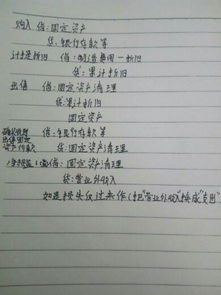 购入 借:固定资产
贷:银行存款等
计提折旧 借:制造费用—折旧
贷:累计折旧
出售 借:固定资产清理
贷:累计折旧
固定资产
借:银行存款等
贷:固定资产清理
借:固定资产清理
贷:营业外收入
如是损失反过来作(把"营业外收入"换成"支出")